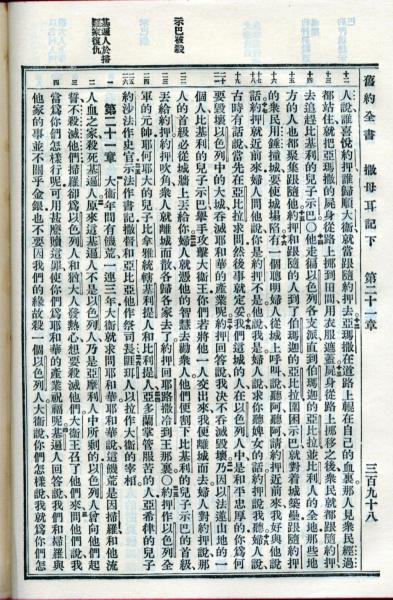 舊約全書　撒母耳記下　第二十一章　三百九十八
人說誰喜悅約押誰歸順大衛就當跟隨約押去亞瑪撒在道路上輥在自己的血裏那人見衆民經過
都站住就把亞瑪撒的屍身從路上挪到田間用衣服遮蓋屍身從路上挪移之後衆民就都跟隨約押
去追趕比基利的兒子示巴○他走徧以色列各支派直到伯瑪迦的亞比拉並比利人的全地那些地
方的人也都聚集跟隨他約押和跟隨的人到了伯瑪迦的亞比拉圍困示巴就對着城築壘跟隨約押
的衆民用錘撞城要使城塌陷有一個聰明婦人從城上呼叫說聽阿聽阿請約押近前來我好與他說
話約押就近前來婦人問他說你是約押不是他說我是婦人說求你聽婢女的話約押說我聽婦人說
古時有話說當先在亞比拉求問然後事就定妥我們這城的人在以色列人中是和平忠厚的你爲何
要毀壞以色列中的大城吞滅耶和華的產業呢約押回答說我決不吞滅毀壞乃因以法蓮山地的一
個人比基利的兒子示巴舉手攻擊大衛王你們若將他一人交出來我便離城而去婦人對約押說那
示巴被殺
人的首級必從城牆上丟給你婦人就憑他的智慧去勸衆人他們便割下比基利的兒子示巴的首級
丟給約押約押吹角衆人就離城而散各歸各家去了約押回耶路撒冷到王那裏○約押作以色列全
軍的元帥耶何耶大的兒子比拿雅統轄基利提人和比利提人亞多蘭掌管服苦的人亞希律的兒子
約沙法作史官示法作書記撒督和亞比亞他作祭司長睚珥人以拉作大衛的宰相
基遍人於掃羅家復仇
第二十一章　大衛年間有饑荒一連三年大衛就求問耶和華耶和華說這饑荒是因掃羅和他流
人血之家殺死基遍人原來這基遍人不是以色列人乃是亞摩利人中所剩的以色列人曾向他們起
誓不殺滅他們掃羅卻爲以色列人和猶大人發熱心想要殺滅他們大衛王召了他們來問他們說我
當爲你們怎樣行呢可用甚麼贖這罪使你們爲耶和華的產業祝福呢基遍人回答說我們和掃羅與
他家的事並不關乎金銀也不要因我們的緣故殺一個以色列人大衛說你們怎樣說我就爲你們怎